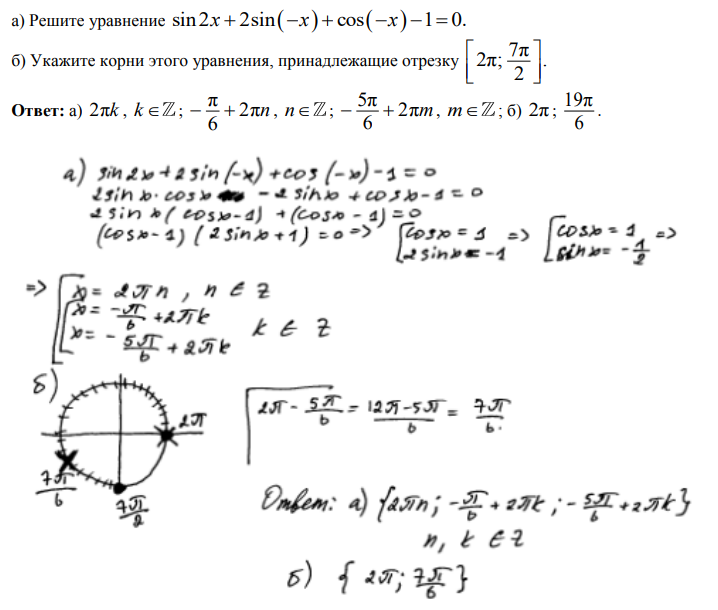 а) Решите уравнение sin 2x + 2 sin(−x) + cos(−x) − 1 = 0.
б) Укажите корни этого уравнения, принадлежащие отрезку [2π; 7π/2].
Ответ: а) 2πk, k ∈ ℤ; −π/6 + 2πn, n ∈ ℤ; −5π/6 + 2πm, m ∈ ℤ; б) 2π; 19π/6.
а) sin 2x + 2 sin(−x) + cos(−x) − 1 = 0
2 sin x · cos x − 2 sin x + cos x − 1 = 0
2 sin x (cos x − 1) + (cos x − 1) = 0
(cos x − 1)(2 sin x + 1) = 0 => [cos x = 1 2 sin x = −1 => [cos x = 1 sin x = −1/2 =>
=> [x = 2πn, n ∈ Z
x = −π/6 + 2πk
x = −5π/6 + 2πk k ∈ Z
б)
2π
7π/6
7π/2
2π − 5π/6 = 12π−5π/6 = 7π/6.
Ответ: а) {2πn; −π/6 + 2πk; −5π/6 + 2πk}
n, k ∈ Z
б) {2π; 7π/6}